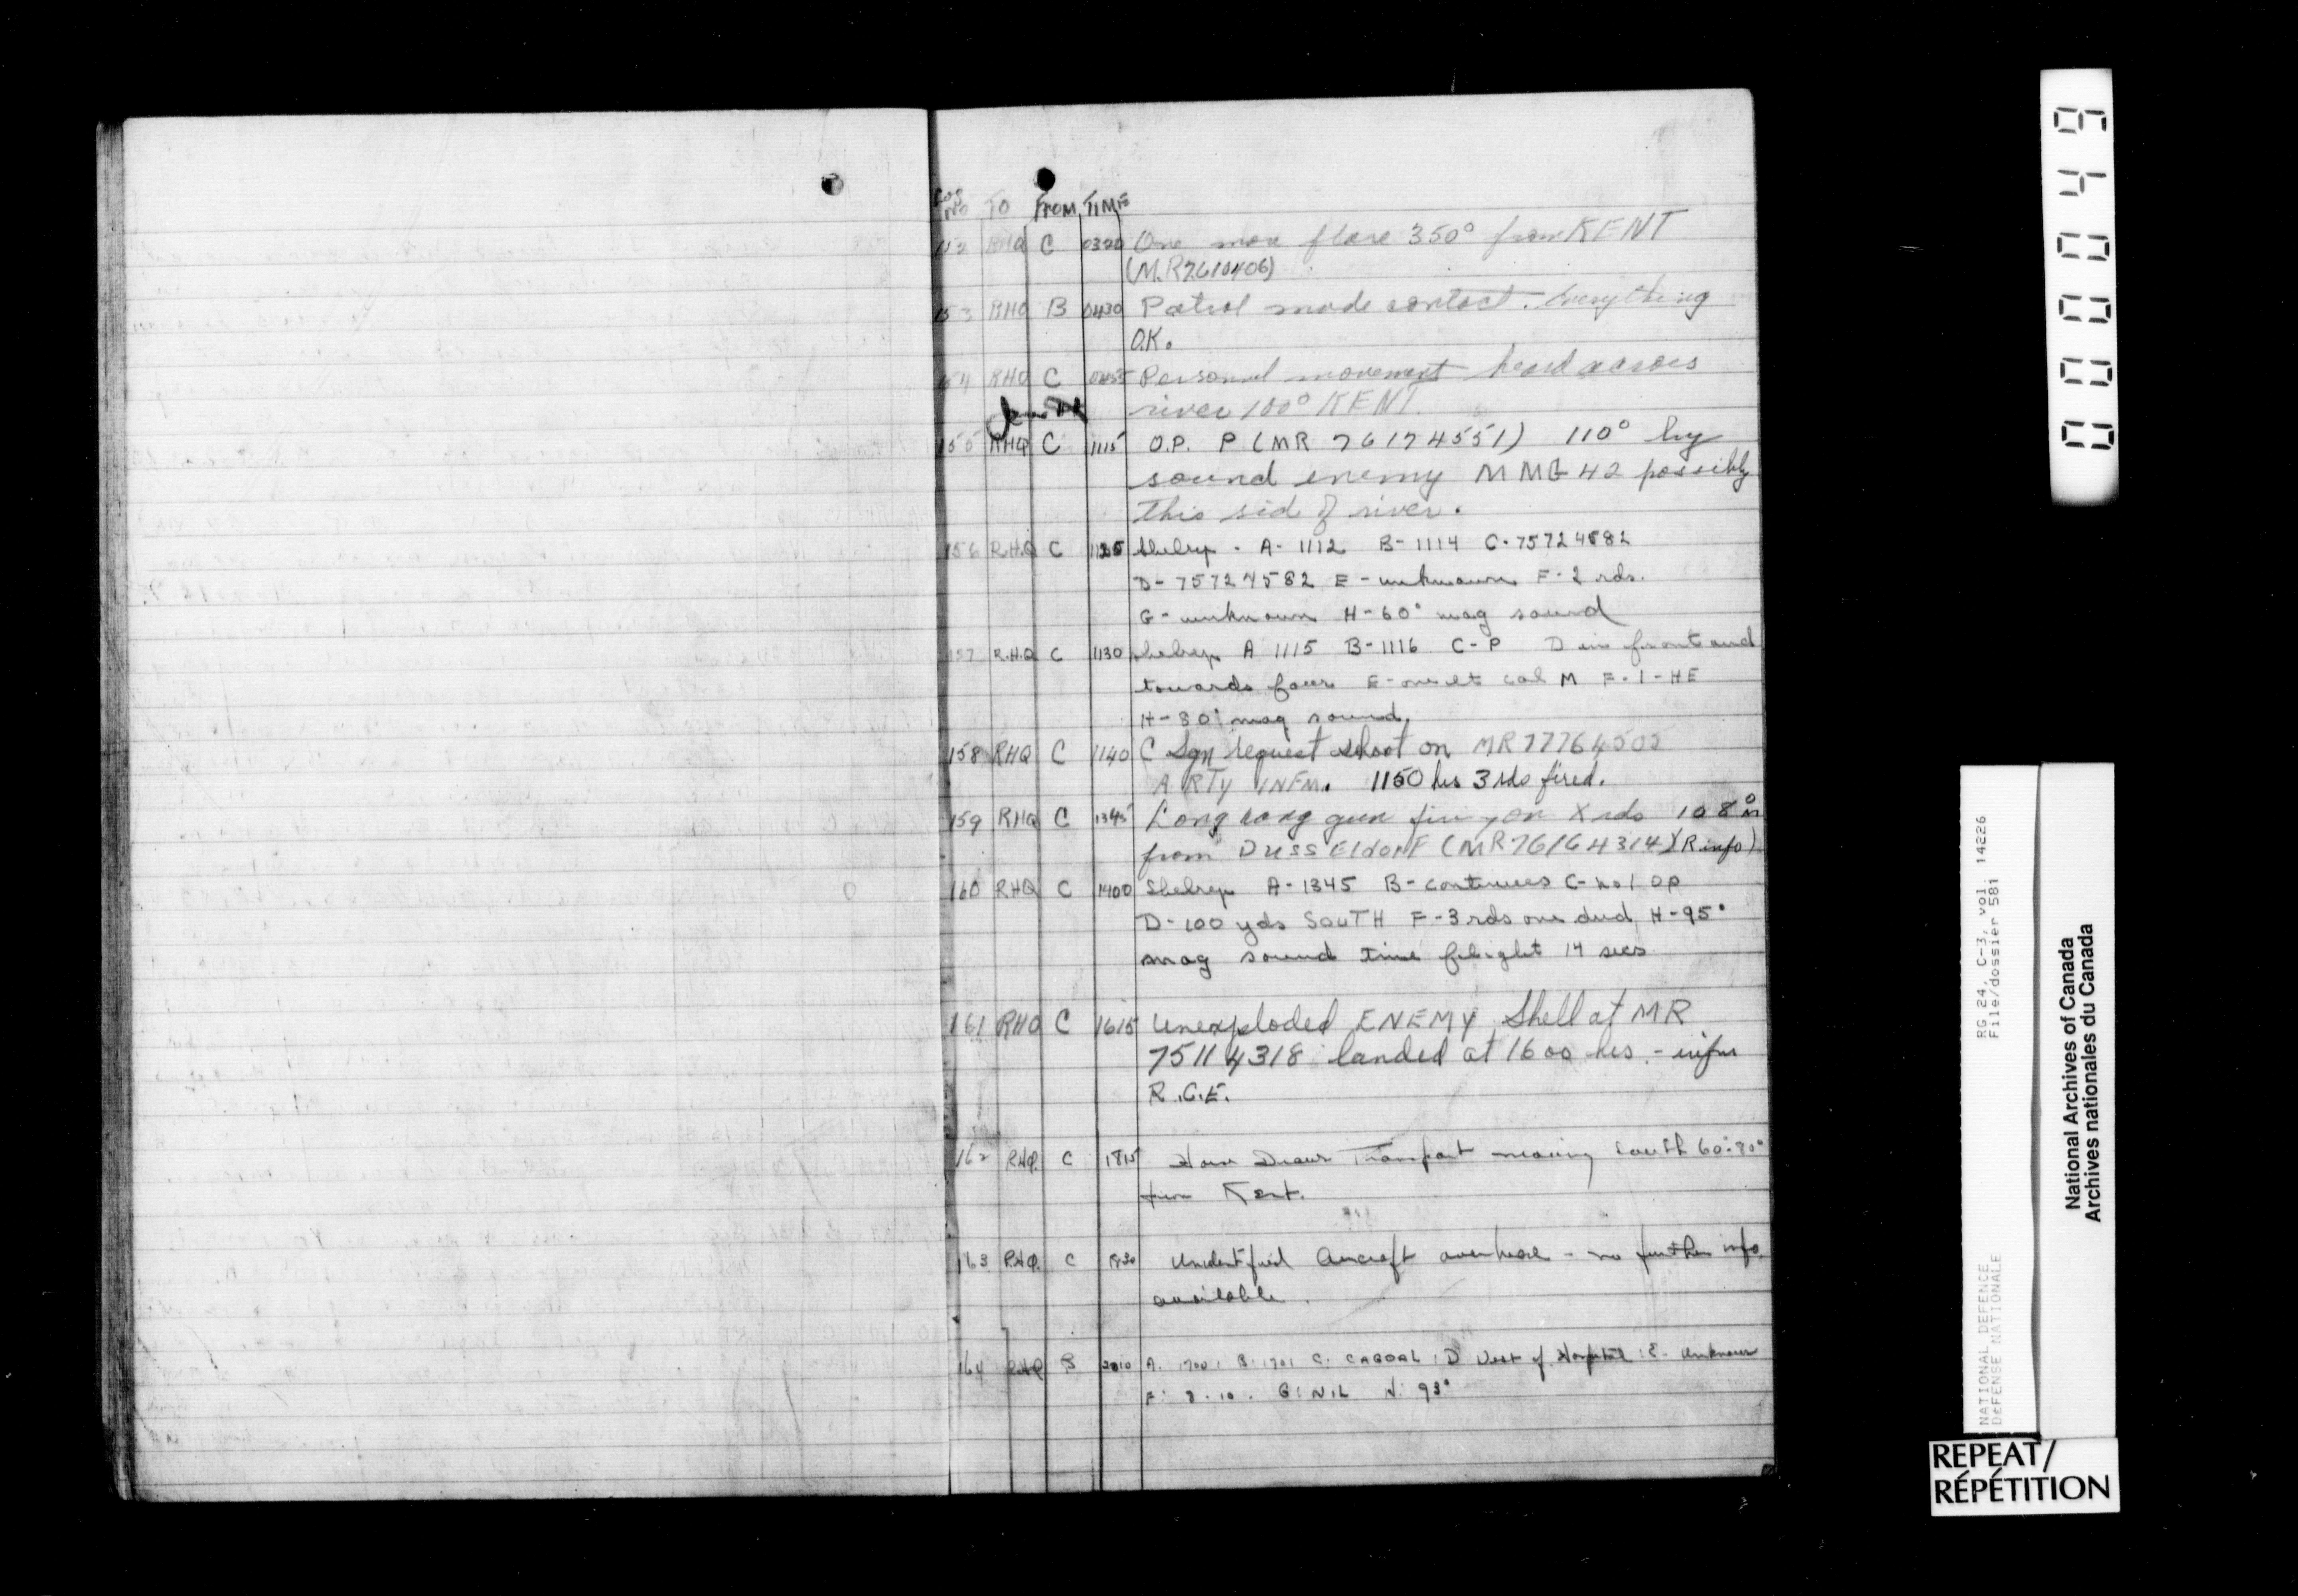 NO TO FROM TIME
152 RHQ C 0320 One more flare 350° from KENT
(M.R 7610406)
153 RHQ B 0430 Patrol made contact. Everything
O.K.
154 RHQ C Personnel movement heard across
river 100° KENT.
155 RHQ C 1115 O.P. P (MR 76174551) 110° by
sound enemy MMG 42 possibly
this side of river.
156 R.H.Q C 1125 Shelrep - A- 1112 B- 1114 C- 75724582
D- 75724582 E- unknown F- 2 rds.
G- unknown H- 60° mag sound
157 R.H.Q C 1130 Shelrep A 1115 B-1116 C-P D in front and
towards E- cal M F-1-HE
H-80° mag sound.
158 RHQ C 1140 C Sqn request shoot on MR 77764505
ARTY INFM. 1150 hrs 3 rds fired.
159 RHQ C 1345 Long rang gun firing on X rds 108° m
from DUSSELDORF (MR 76164314) (R info)
160 RHQ C 1400 Shelrep A-1345 B-continues C-no 1 OP
D-100 yds SOUTH F-3 rds one dud H-95°
mag sound time flight 14 secs
161 RHQ C 1615 Unexploded ENEMY Shell at MR
75114318 landed at 1600 hrs. - infm
R.C.E.
162 RHQ. C 1815 Horse Drawn Transport moving South 60°-80°
from Kent.
163 RHQ. C Unidentified Aircraft overhead - no further info.
available.
164 RHQ B 2010 A. 1700: B: 1701 C: : D West of Hospital : E- Unknown
F: 8-10. G: NIL H: 93°
0000449
RG 24, C-3, vol. 14226
File/dossier 581
NATIONAL DEFENCE
DÉFENSE NATIONALE
National Archives of Canada
Archives nationales du Canada
REPEAT/
RÉPÉTITION